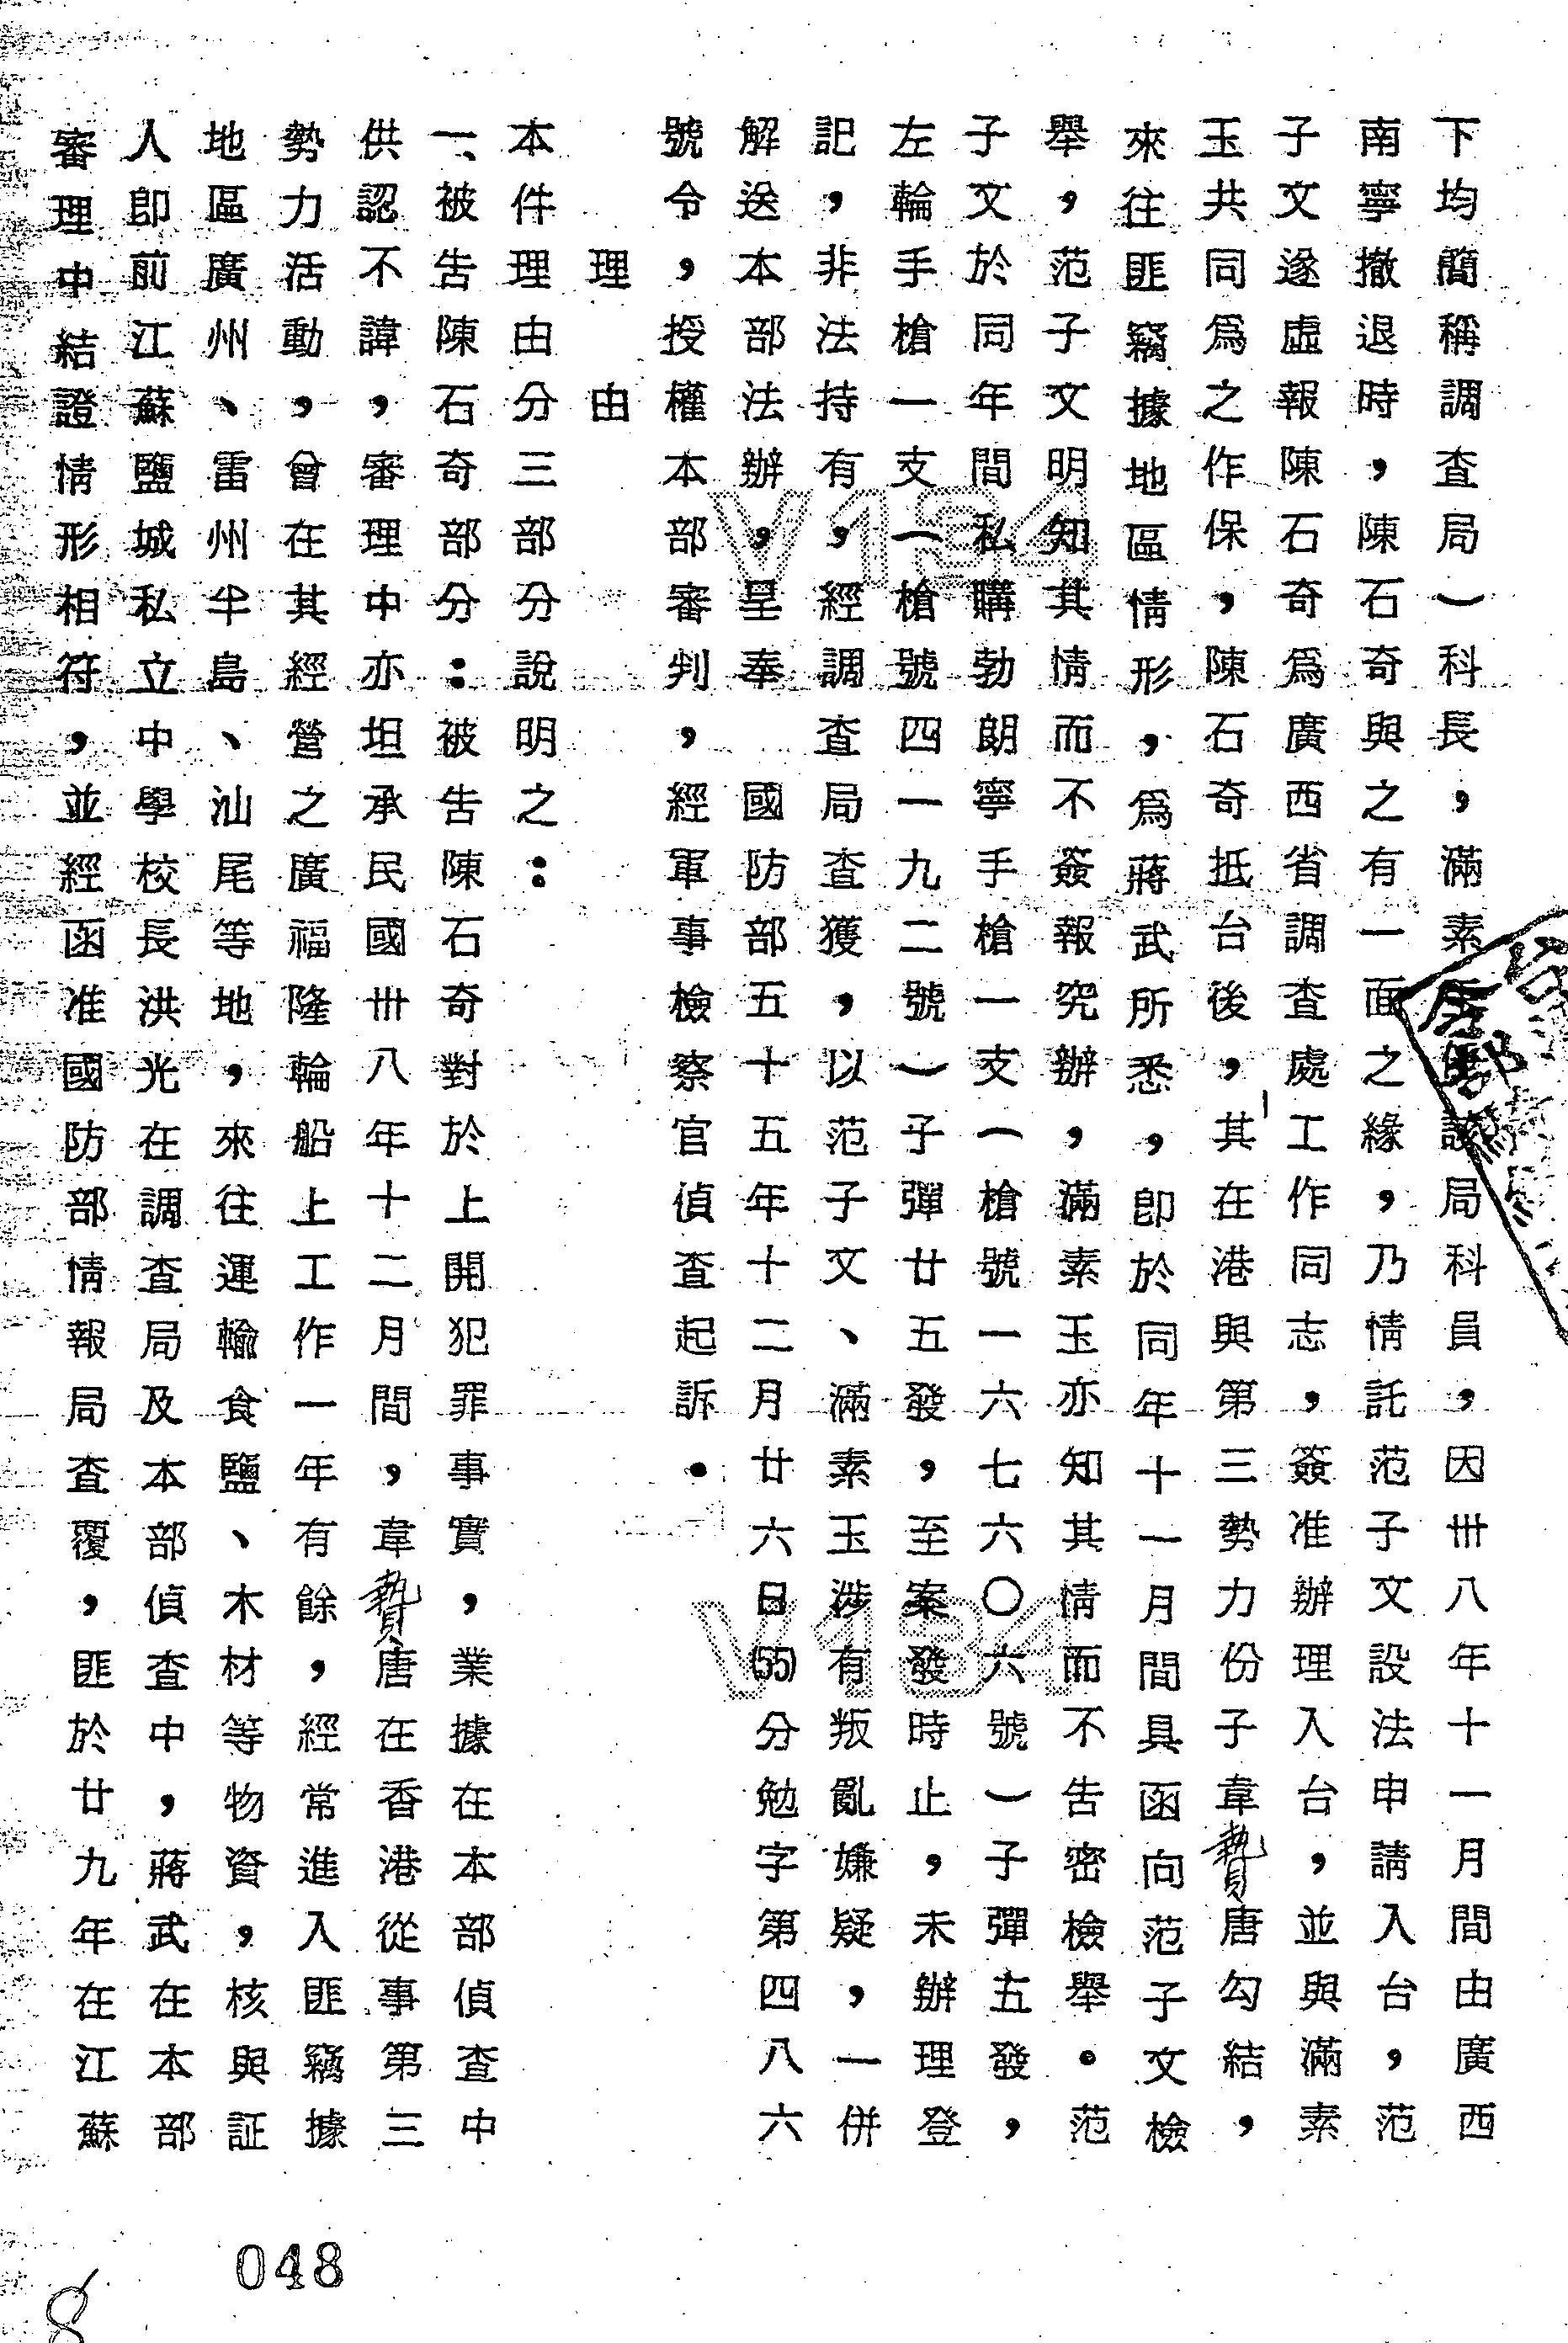 下均簡稱調查局）科長，滿素玉為該局科員，因卅八年十一月間由廣西
南寧撤退時，陳石奇與之有一面之緣，乃情託范子文設法申請入台，范
子文遂虛報陳石奇為廣西省調查處工作同志，簽准辦理入台，並與滿素
玉共同為之作保，陳石奇抵台後，其在港與第三勢力份子韋贄唐勾結，
來往匪竊據地區情形，為蔣武所悉，即於同年十一月間具函向范子文檢
舉，范子文明知其情而不簽報究辦，滿素玉亦知其情而不告密檢舉。范
子文於同年間私購勃朗寧手槍一支（槍號一六七六〇六號）子彈五發，
左輪手槍一支（槍號四一九二號）子彈廿五發，至案發時止，未辦理登
記，非法持有，經調查局查獲，以范子文、滿素玉涉有叛亂嫌疑，一併
解送本部法辦，呈奉國防部五十五年十二月廿六日(55)分勉字第四八六
號令，授權本部審判，經軍事檢察官偵查起訴。
理由
本件理由分三部分說明之：
一、被告陳石奇部分：被告陳石奇對於上開犯罪事實，業據在本部偵查中
供認不諱，審理中亦坦承民國卅八年十二月間，韋贄唐在香港從事第三
勢力活動，曾在其經營之廣福隆輪船上工作一年有餘，經常進入匪竊據
地區廣州、雷州半島、汕尾等地，來往運輸食鹽、木材等物資，核與証
人即前江蘇鹽城私立中學校長洪光在調查局及本部偵查中，蔣武在本部
審理中結證情形相符，並經函准國防部情報局查覆，匪於廿九年在江蘇
048
8